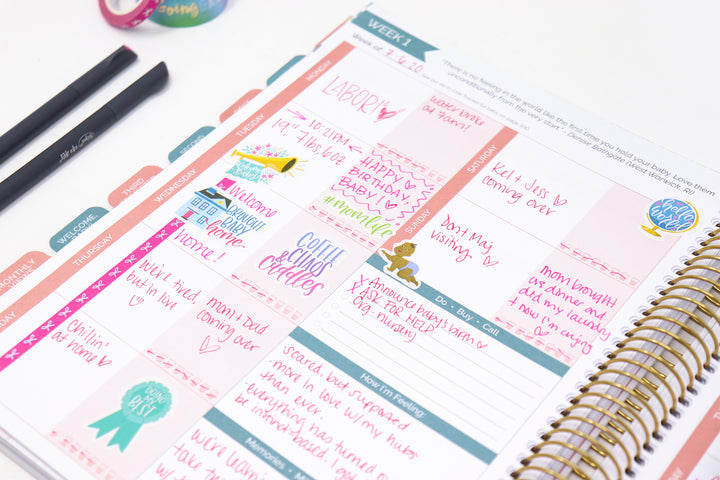 WEEK 1
Week of: 7.6.20
"There is no feeling in the world like the first time you hold your baby. Love them
unconditionally from the very start." - Denise Bathgate (West Warwick, RI)
MONDAY
LABOR!!
Water broke
at 7am!!
TUESDAY
10:21PM
19", 7lbs 6oz
HAPPY
BIRTHDAY
BABY
#momlife
WEDNESDAY
Welcome
home!
BROUGHT
BABY
home
COFFEE
CHAOS
cuddles
THURSDAY
We're tired
but in love
mom + Dad
coming over
Chillin'
at home
DOING
MY
BEST
SATURDAY
Kel + Jess
coming over
hello
WORLD
SUNDAY
Don + Maj
visiting
mom brought
us dinner and
did my laundry
+ now I'm crying
Do • Buy • Call
Announce baby's birth
ASK FOR HELP
Org. nursery
How I'm Feeling:
scared, but supported
• more in love w/my hubs
than ever
• everything has turned
be instinct-based. I get
Memories
We're learnin
take th
w/ t
SECOND
THIRD
WELCOME
MONTHLY